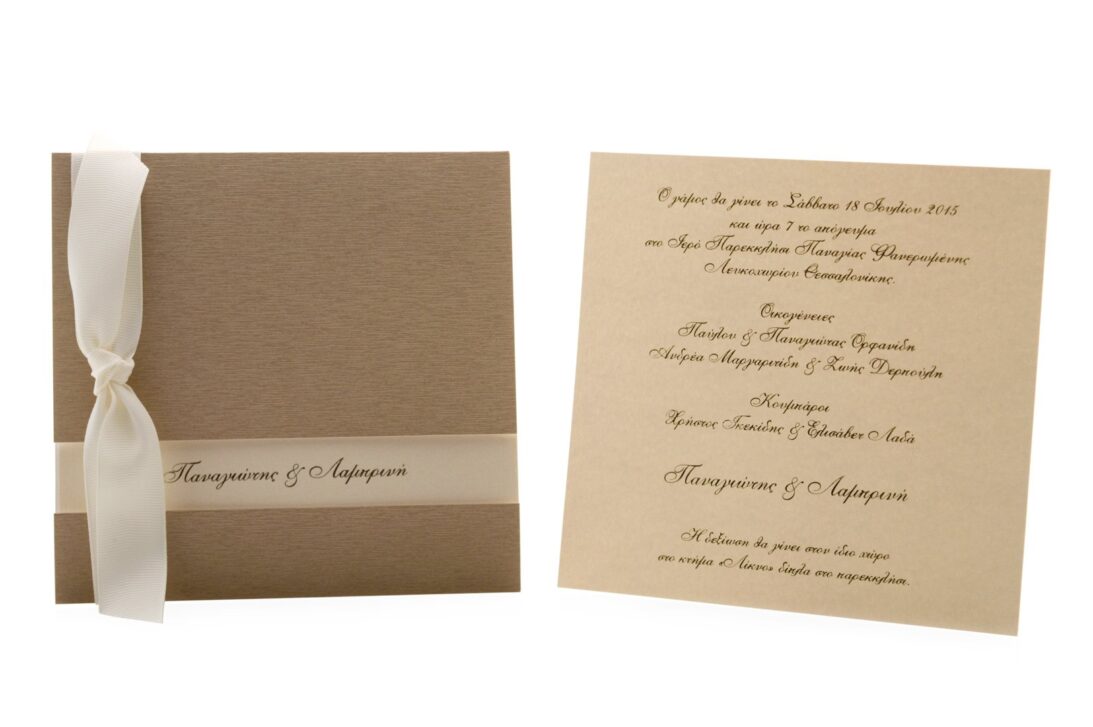 Παναγιώτης & Λαμπρινή
Ο γάμος θα γίνει το Σάββατο 18 Ιουλίου 2015
και ώρα 7 το απόγευμα
στο Ιερό Παρεκκλήσι Παναγίας Φανερωμένης
Λευκοχωρίου Θεσσαλονίκης.
Οικογένειες
Παύλου & Παναγιώτας Ορφανίδη
Ανδρέα Μαργαριτίδη & Ζωής Δερπούλη
Κουμπάροι
Χρήστος Γκεκίδης & Ελισάβετ Λαδά
Παναγιώτης & Λαμπρινή
Η δεξίωση θα γίνει στον ίδιο χώρο
στο κτήμα «Λίκνο» δίπλα στο παρεκκλήσι.